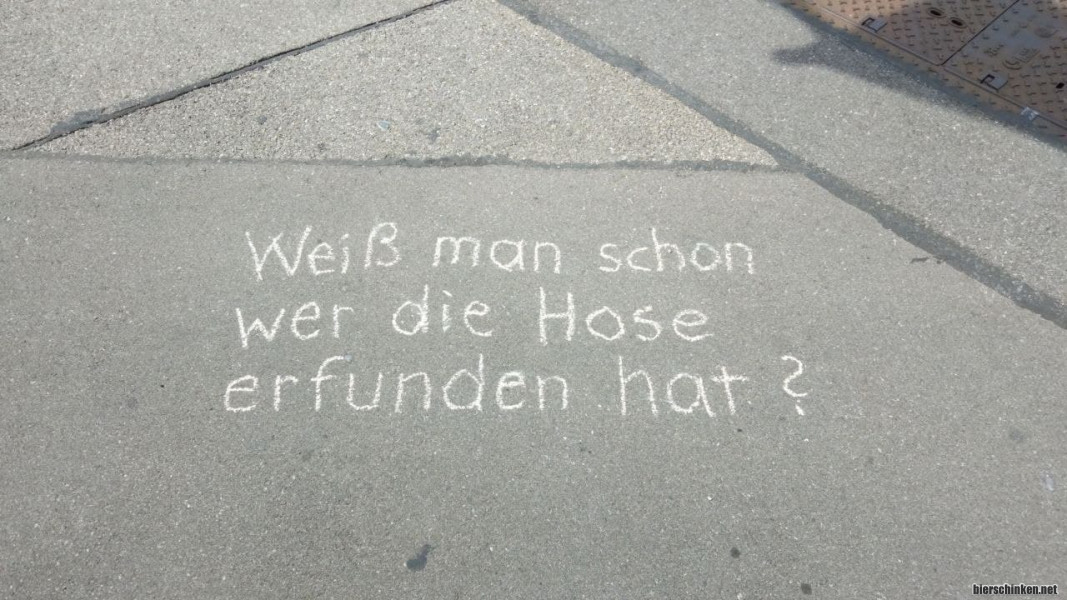 Weiß man schon
wer die Hose
erfunden hat ?
bierschinken.net